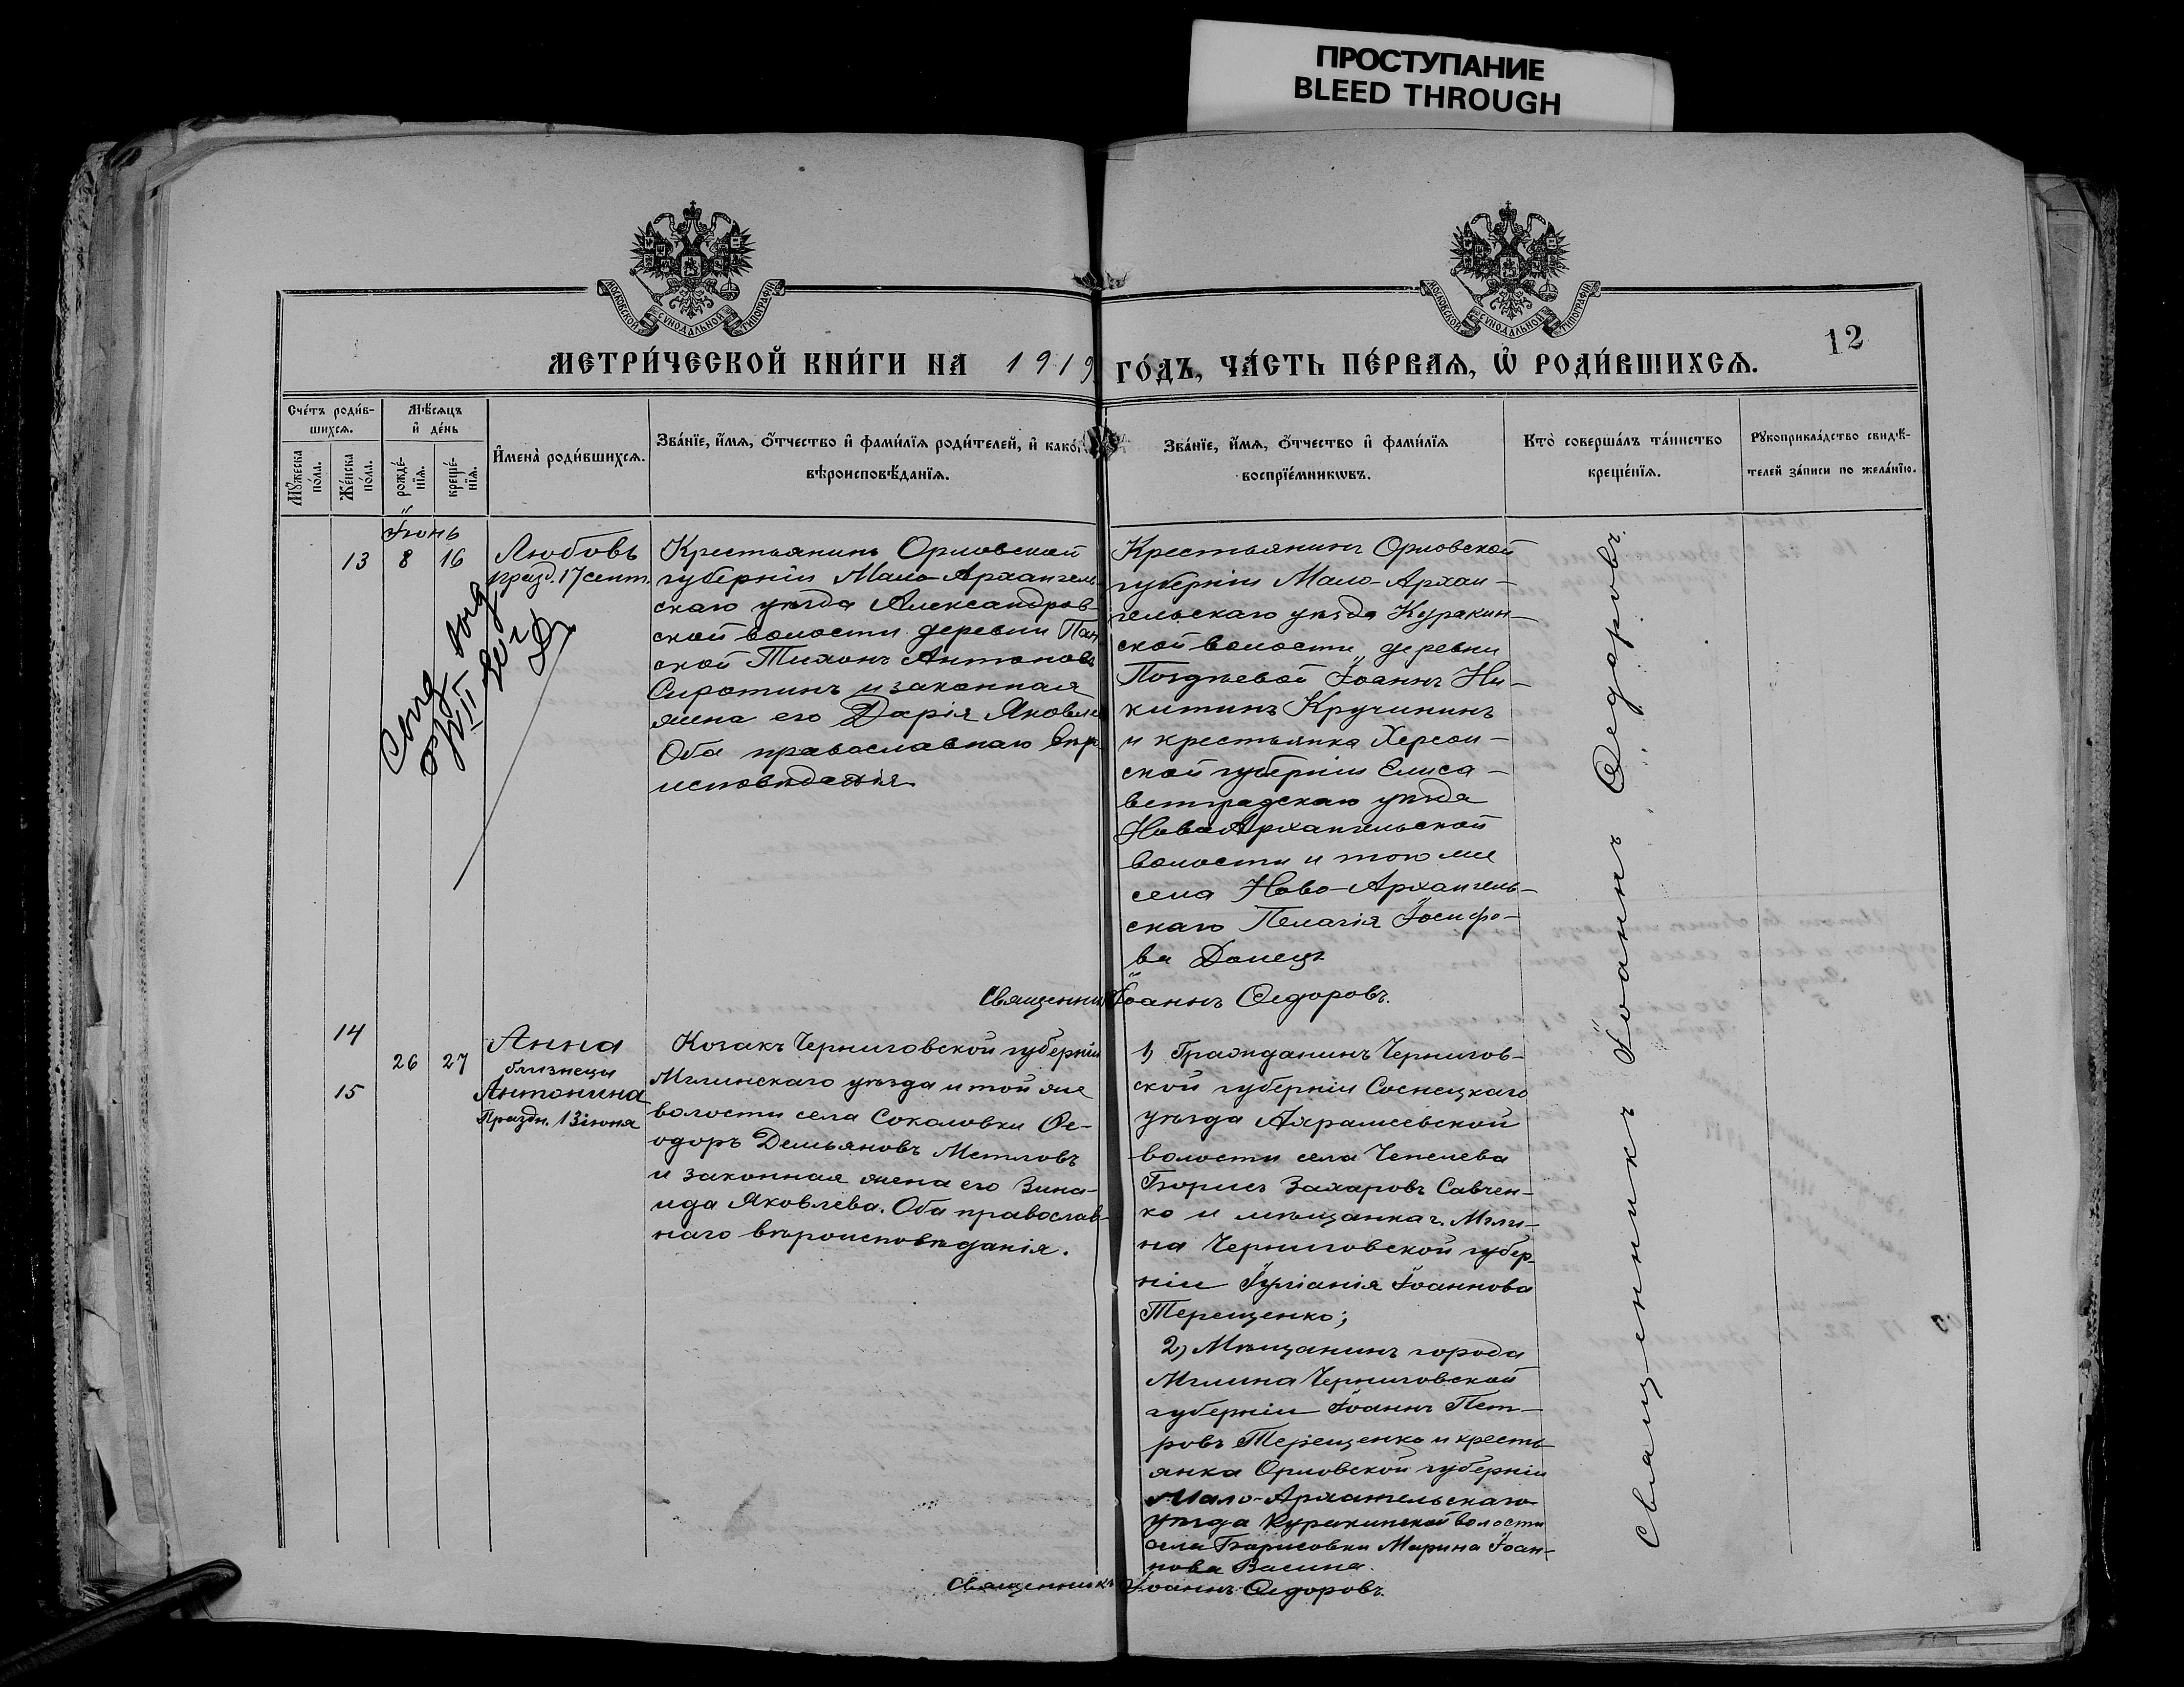 ПРОСТУПАНИЕ
BLEED THROUGH
МОСКОВСКОЙ СѴНОДАЛЬНОЙ ТИПОГРАФІИ
МОСКОВСКОЙ СѴНОДАЛЬНОЙ ТИПОГРАФІИ
12
МЕТРИ́ЧЕСКОЙ КНИ́ГИ НА 1919 ГО́ДЪ, ЧА́СТЬ ПЕ́РВАѦ, Ѡ҆ РОДИ́ВШИХСѦ.
Сче́тъ роди́в-
шихсѧ.
Мѣ́сѧцъ
и҆ де́нь
Мꙋ́жеска
по́ла.
Же́нска
по́ла.
рожде́-
нїѧ.
креще́-
нїѧ.
И҆мена̀ роди́вшихсѧ.
Зва́нїе, и҆́мѧ, ѻ҆́тчество и҆ фами́лїѧ роди́телей, и҆ како́гѡ
вѣроисповѣ́данїѧ.
Зва́нїе, и҆́мѧ, ѻ҆́тчество и҆ фами́лїѧ
воспрїе́мникѡвъ.
Кто̀ соверша́лъ та́инство
креще́нїѧ.
Рꙋкоприкла́дство свидѣ́-
телей за́писи по жела́нїю.
Іюнь
13 8 16
Любовь
празд. 17 сент.
Крестьянинъ Орловской
губерніи Мало-Архангель-
скаго уѣзда Александров-
ской волости деревни Пан
ской Тихонъ Антоновъ
Сиротинъ и законная
жена его Дарія Яковле
Оба православнаго вѣро
исповѣданія
Крестьянинъ Орловской
губерніи Мало-Архан-
гельскаго уѣзда Куракин-
ской волости, деревни
Позднѣевой Іоаннъ Ни-
китинъ Кручининъ
и крестьянка Херсон-
ской губерніи Елиса-
ветградскаго уѣзда
Ново Архангельской
волости и того же
села Ново-Архангель-
скаго Пелагія Іосифо-
ва Донецъ
Священникъ Іоаннъ Ѳедоровъ.
14
26 27
15
Анна
близнецы
Антонина
Праздн. 13 іюня
Козакъ Черниговской губерніи
Мглинскаго уѣзда и той же
волости села Соколовки Ѳе-
одоръ Демьяновъ Метловъ
и законная жена его Зина-
ида Яковлева. Оба православ-
наго вѣроисповѣданія.
1) Гражданинъ Чернигов-
ской губерніи Сосницкаго
уѣзда
волости села Чепелева
Борисъ Захаровъ Савчен-
ко и мѣщанка г. Мгли-
на Черниговской губер-
ніи Іуліанія Іоаннова
Терещенко;
2) Мѣщанинъ города
Мглина Черниговской
губерніи Іоаннъ Пет-
ровъ Терещенко и кресть
янка Орловской губерніи
Мало-Архангельскаго
уѣзда Куракинской волости
села Борисовки Марина Іоан-
нова Васина.
Священникъ Іоаннъ Ѳедоровъ.
Священникъ Іоаннъ Ѳедоровъ.